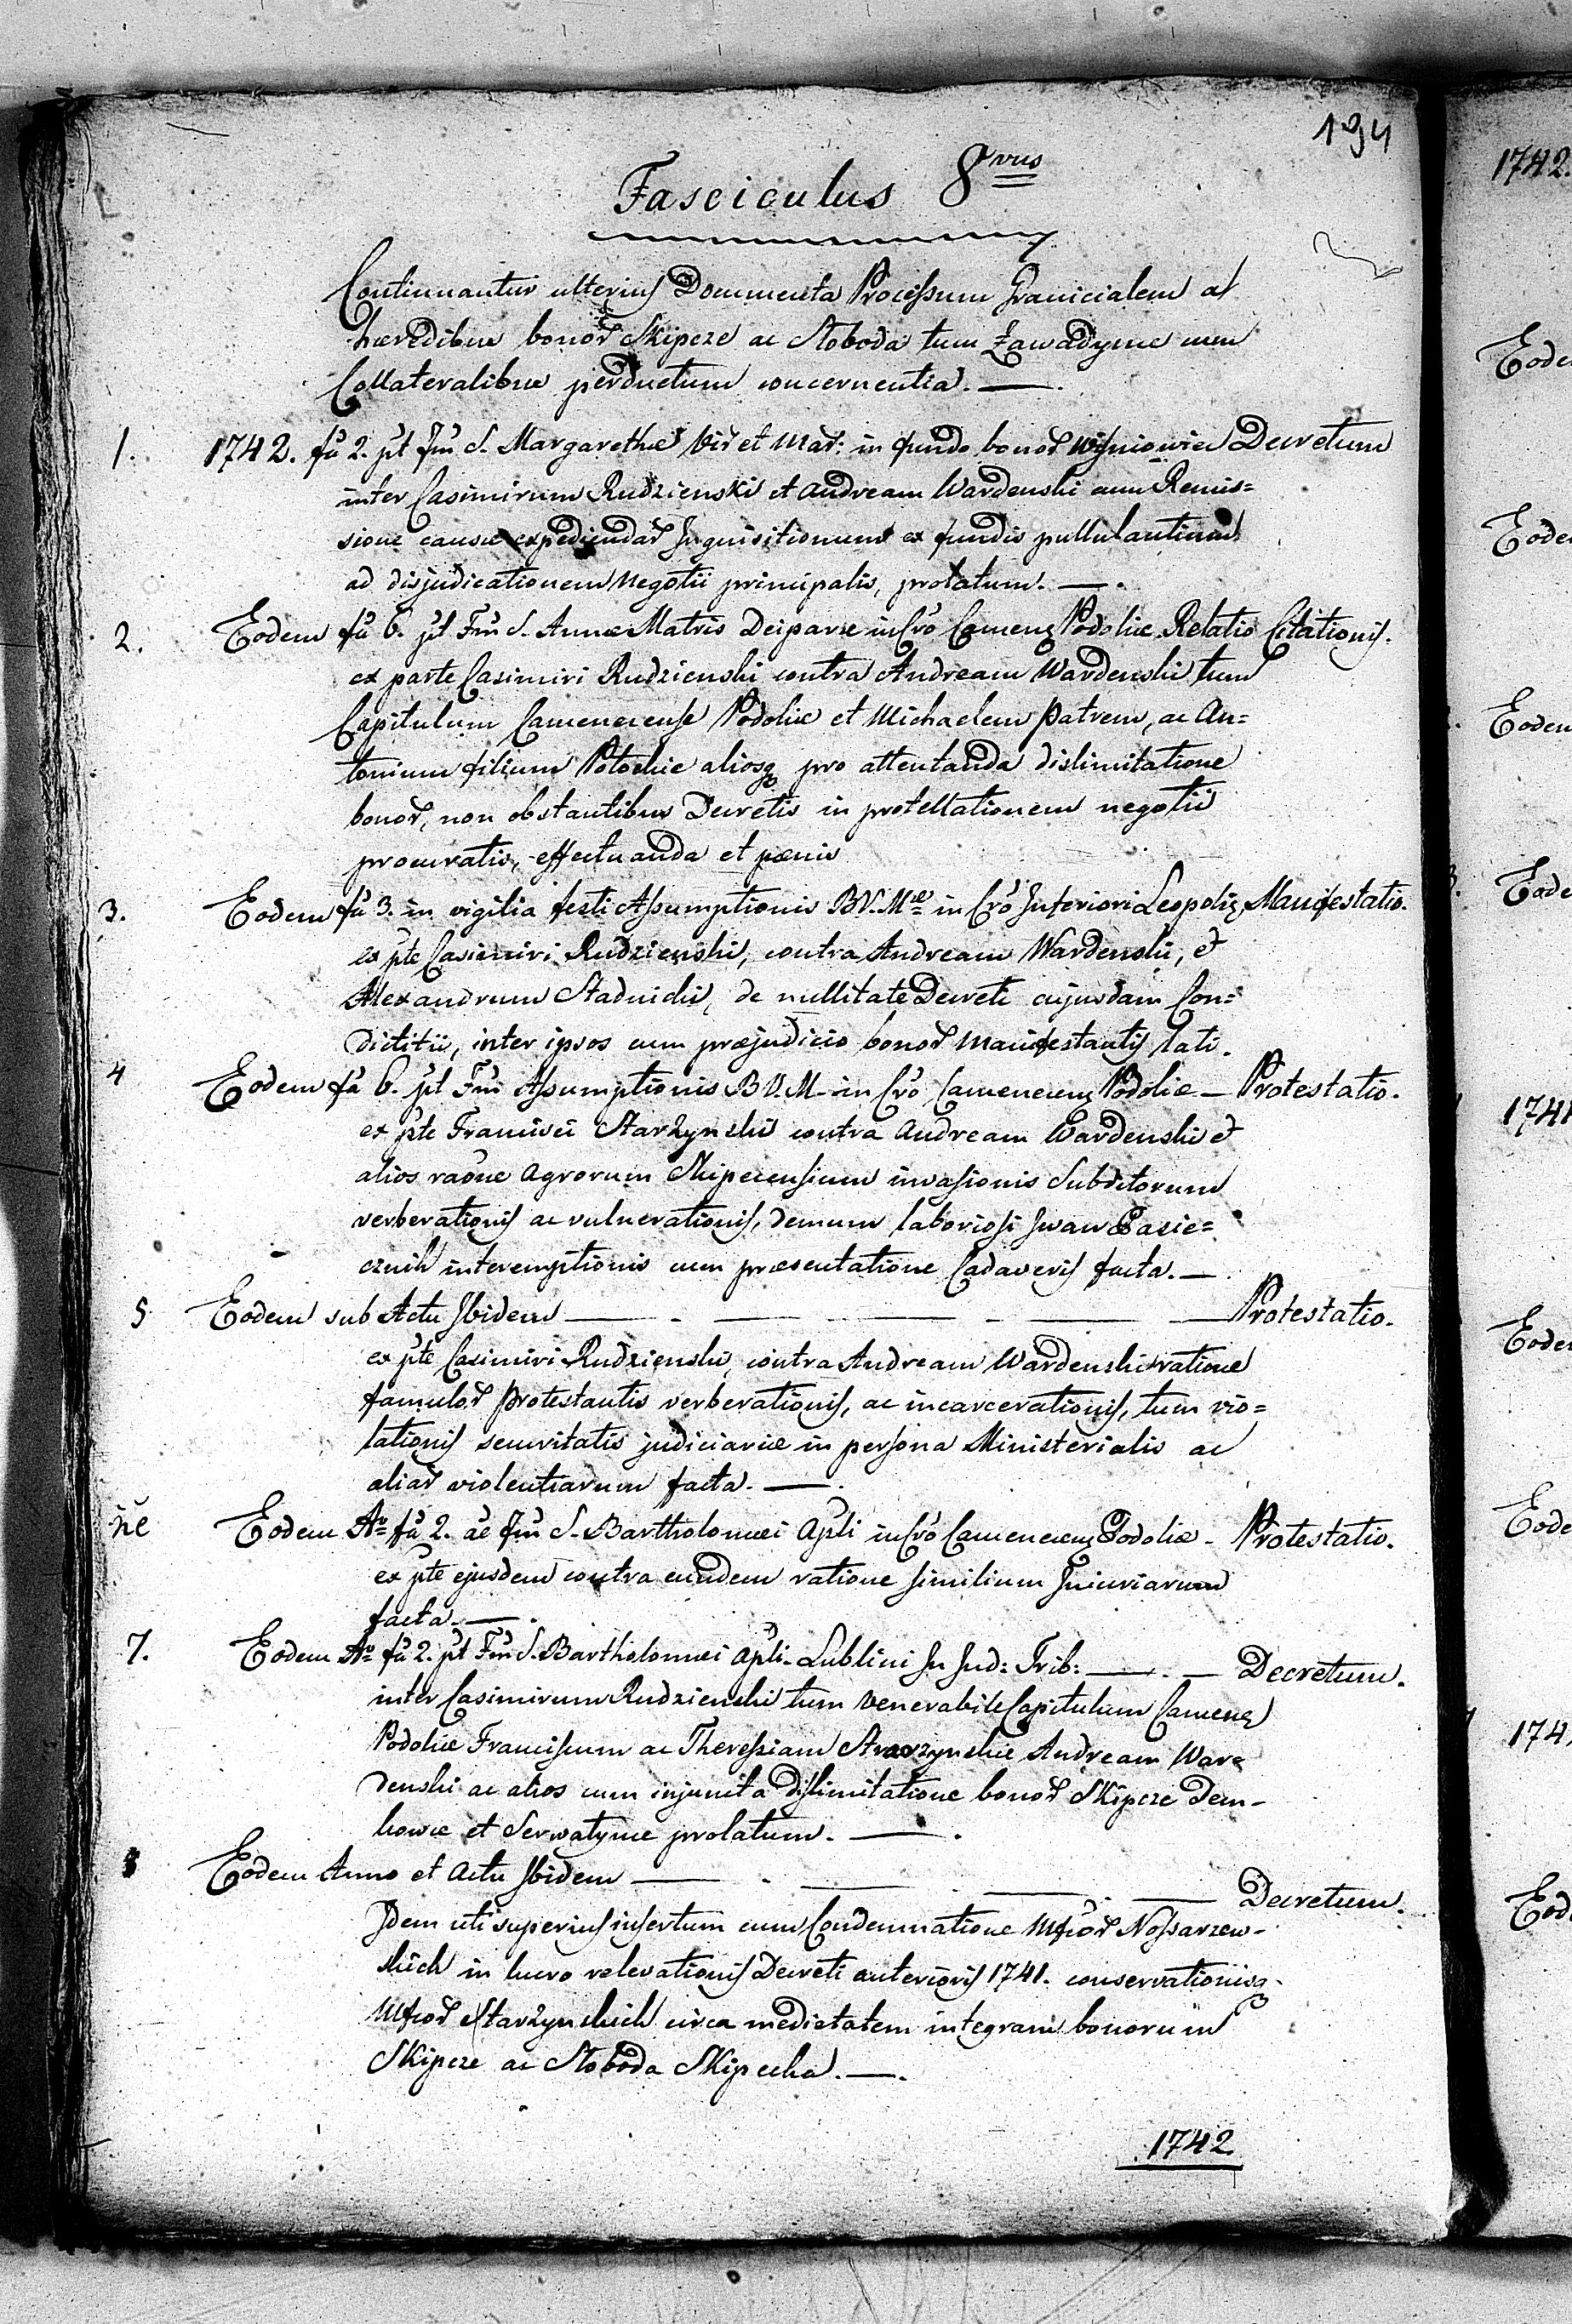 194
Fasciculus 8vus
Continuantur ulterius Documenta Processum Granicialem ab
hæredibus bonor Skipcze ac Sloboda tum Zawadynce cum
Collateralibus perductum concernentia. —
1. 1742. fa 2. pt fm S. Margarethæ Vir et Mar: in fundo bonor Wisniowiec Decretum
inter Casimirum Rudzienski et Andream Wardenski cum Remis=
sione causæ expediendar Inquisitionum ex fundis pullulantium
ad disjudicationem Negotii principalis, prolatum. —.
2. Eodem fa 6. pt Fm S. Annæ Matris Deiparæ in Cro Camenez Podoliæ Relatio Citationis.
ex parte Casimiri Rudzienski contra Andream Wardenski tum
Capitulum Camenecense Podoliæ et Michaelem Patrem, ac An=
tonium filium Potockie aliosq pro attentanda dislimitatione
bonor, non obstantibus Decretis in protellationem negotii
procuratis, effectuanda et pænis
3. Eodem fa 3. in vigilia festi Assumptionis B.V.Mæ in Cro Inferiori Leopoliz Manifestatio.
ex pte Casimiri Rudzienski, contra Andream Wardenski, et
Alexandrum Stadnicki, de nullitate Decreti cujusdam Con=
dictitii, inter ipsos cum præjudicio bonor Manifestantis lati.
4 Eodem fa 6. pt Fm Assumptionis B.V.M. in Cro Camenecenz Podoliæ — Protestatio.
ex pte Francisci Starzynski contra Andream Wardenski et
alios raone Agrorum Skipecensium invasionis Subditorum
verberationis ac vulnerationis, demum laboriosi Iwan Pasie=
cznik interemptionis cum præsentatione Cadaveris facta. —.
5 Eodem sub Actu Ibidem — — — — Protestatio.
ex pte Casimiri Rudzienski, contra Andream Wardenski ratione
famulor Protestantis verberationis, ac incarcerationis, tum vio=
lationis securitatis judiciariæ in persona Ministerialis ac
aliar violentiarum facta. —.
ne Eodem Ao fa 2. ae fm S. Bartholomei Apli in Cro Camenecenz Podoliæ - Protestatio.
ex pte ejusdem contra eundem ratione similium Injuriarum
facta. —.
7. Eodem Ao fa 2. pt Fm S. Bartholomei Apli. Lublini In Jud: Trib: — . — Decretum.
inter Casimirum Rudzienski tum Venerabile Capitulum Camenez
Podoliæ Franciscum ac Theressiam Starzynskie Andream War=
denski ac alios cum injuncta dislimitatione bonor Skipcze Dem-
kowce et Serwatynce prolatum. —.
8 Eodem Anno et Actu Ibidem — — — — Decretum.
Idem uti superius insertum cum Condemnatione Mfcor Nossarzew-
skich in lucro relevationis Decreti anterioris 1741. conservationisq.
Mfcor Starzynskich circa medietatem integram bonorum
Skipcze ac Sloboda Skipecka. —.
1742
1742.
Eode
Eode
Eodem
3. Eode
1741
Eode
Eode
174
Eod